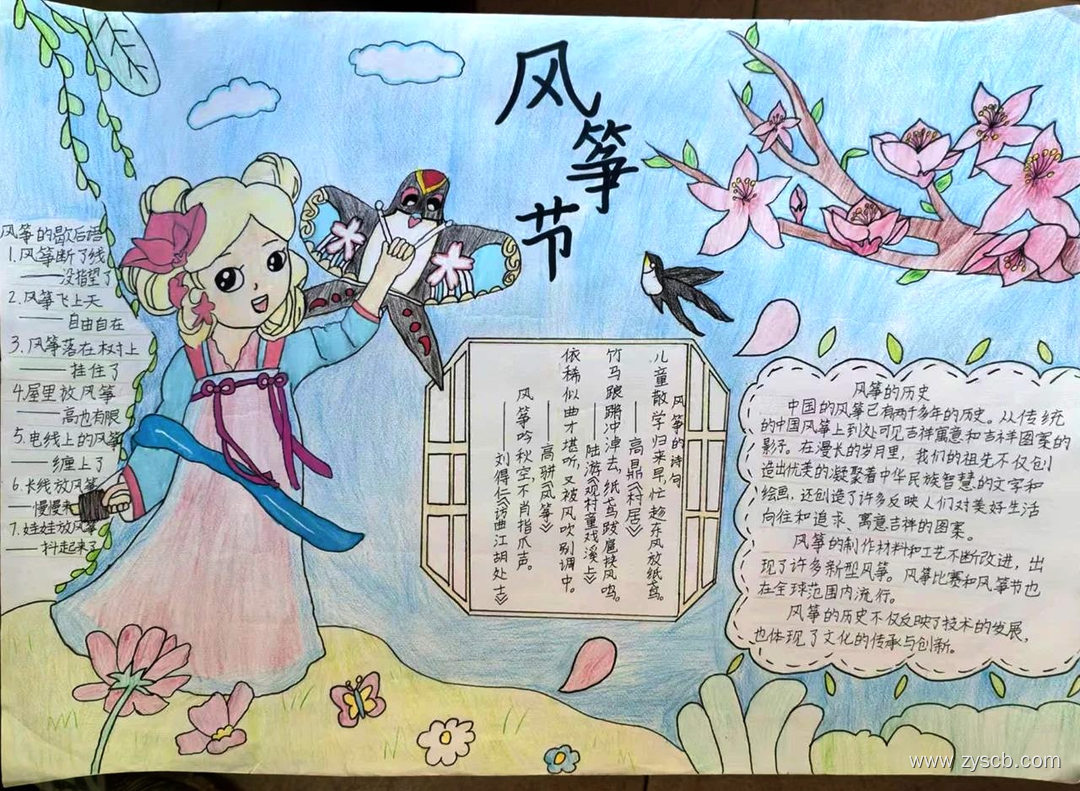 风筝节
风筝的歇后语
1.风筝断了线
——没指望了
2.风筝飞上天
——自由自在
3.风筝落在树上
——挂住了
4.屋里放风筝
——高也有限
5.电线上的风筝
——缠上了
6.长线放风筝
——慢慢来
7.娃娃放风筝
——抖起来了
风筝的诗句
儿童散学归来早,忙趁东风放纸鸢。
——高鼎《村居》
竹马踉蹡冲淖去,纸鸢跋扈挟风鸣。
——陆游《观村童戏溪上》
依稀似曲才堪听,又被风吹别调中。
——高骈《风筝》
风筝吟秋空,不肖指爪声。
——刘得仁《访曲江胡处士》
风筝的历史
中国的风筝已有两千多年的历史。从传统
的中国风筝上到处可见吉祥寓意和吉祥图案的
影子。在漫长的岁月里,我们的祖先不仅创
造出优美的凝聚着中华民族智慧的文字和
绘画,还创造了许多反映人们对美好生活
向往和追求、寓意吉祥的图案。
风筝的制作材料和工艺不断改进,出
现了许多新型风筝。风筝比赛和风筝节也
在全球范围内流行。
风筝的历史不仅反映了技术的发展,
也体现了文化的传承与创新。
www.zyscb.com